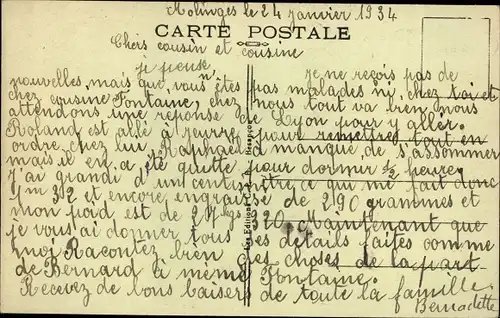 Molinges le 24 janvier 1934
CARTE POSTALE
Chers cousin et cousine
je ne reçois pas de
nouvelles, mais je pense que vous n'êtes pas malades ni chez toi et
chez cousine Fontaine, chez nous tout va bien nous
attendons une réponse de Lyon pour y aller.
Roland est allé à Jeurre pour remettre tout en
ordre chez lui, Raphael a manqué de s'assommer
mais il en a été quitte pour dormir 1/2 heure,
j'ai grandi d'un centimètre ce qui me fait donc
1m 32 et encore engraissé de 290 grammes et
mon poid est de 27 kgs 320. Maintenant que
je vous ai donner tous ces détails faites comme
moi Racontez bien des choses de la part
de Bernard à mémé Fontaine.
Recevez de bons baisers de toute la famille.
Bernadette
Les Editions